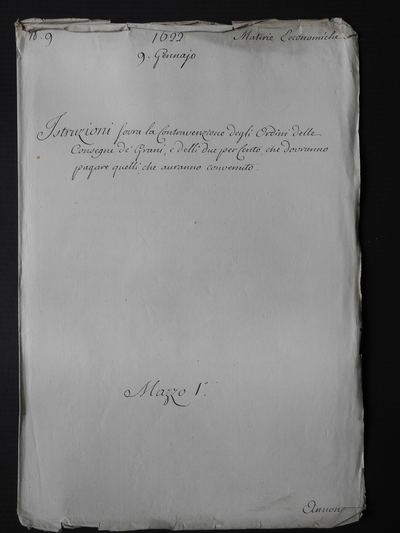 N. 9 1622 Materie Economiche
9. Gennajo
Istruzioni sovra la Contravenzione degli Ordini delle
Consegne de' Grani, e delli due per Cento che dovranno
pagare quelli che auranno convenuto.
Mazzo 1.°